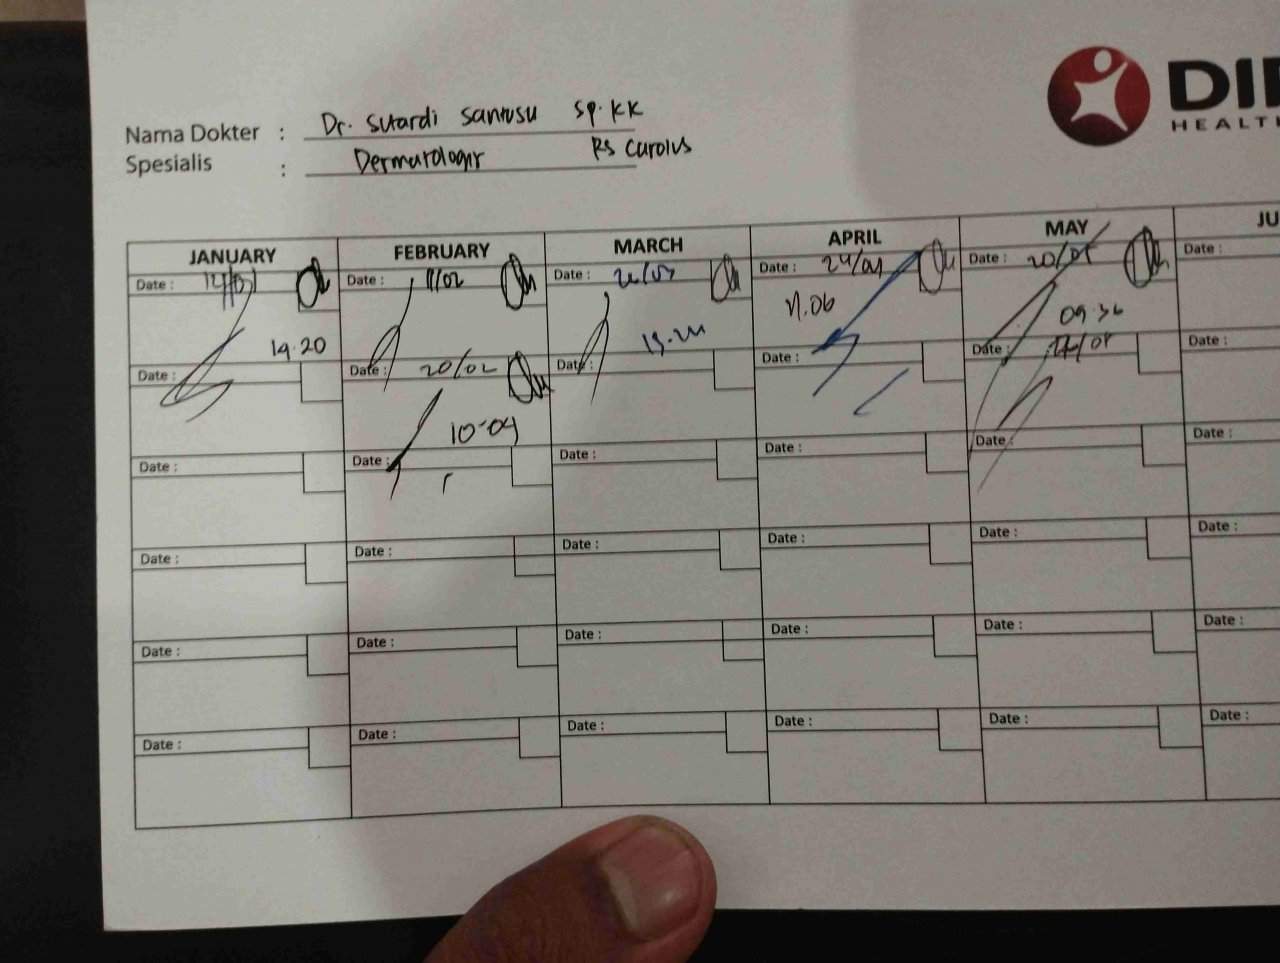 DIE
HEALTH
Nama Dokter : Dr. Sutardi Santusu Sp.KK
Spesialis : Dermatologir RS Carolus
JANUARY FEBRUARY MARCH APRIL MAY JU
Date : 14/01 Date : 11/02 Date : Date : 24/04 Date : 20/05 Date :
19.20 11.06 09.36
Date : Date : 20/02 Date : Date : Date : Date :
10.04
Date : Date : Date : Date : Date : Date :
Date : Date : Date : Date : Date : Date :
Date : Date : Date : Date : Date : Date :
Date : Date : Date : Date : Date : Date :